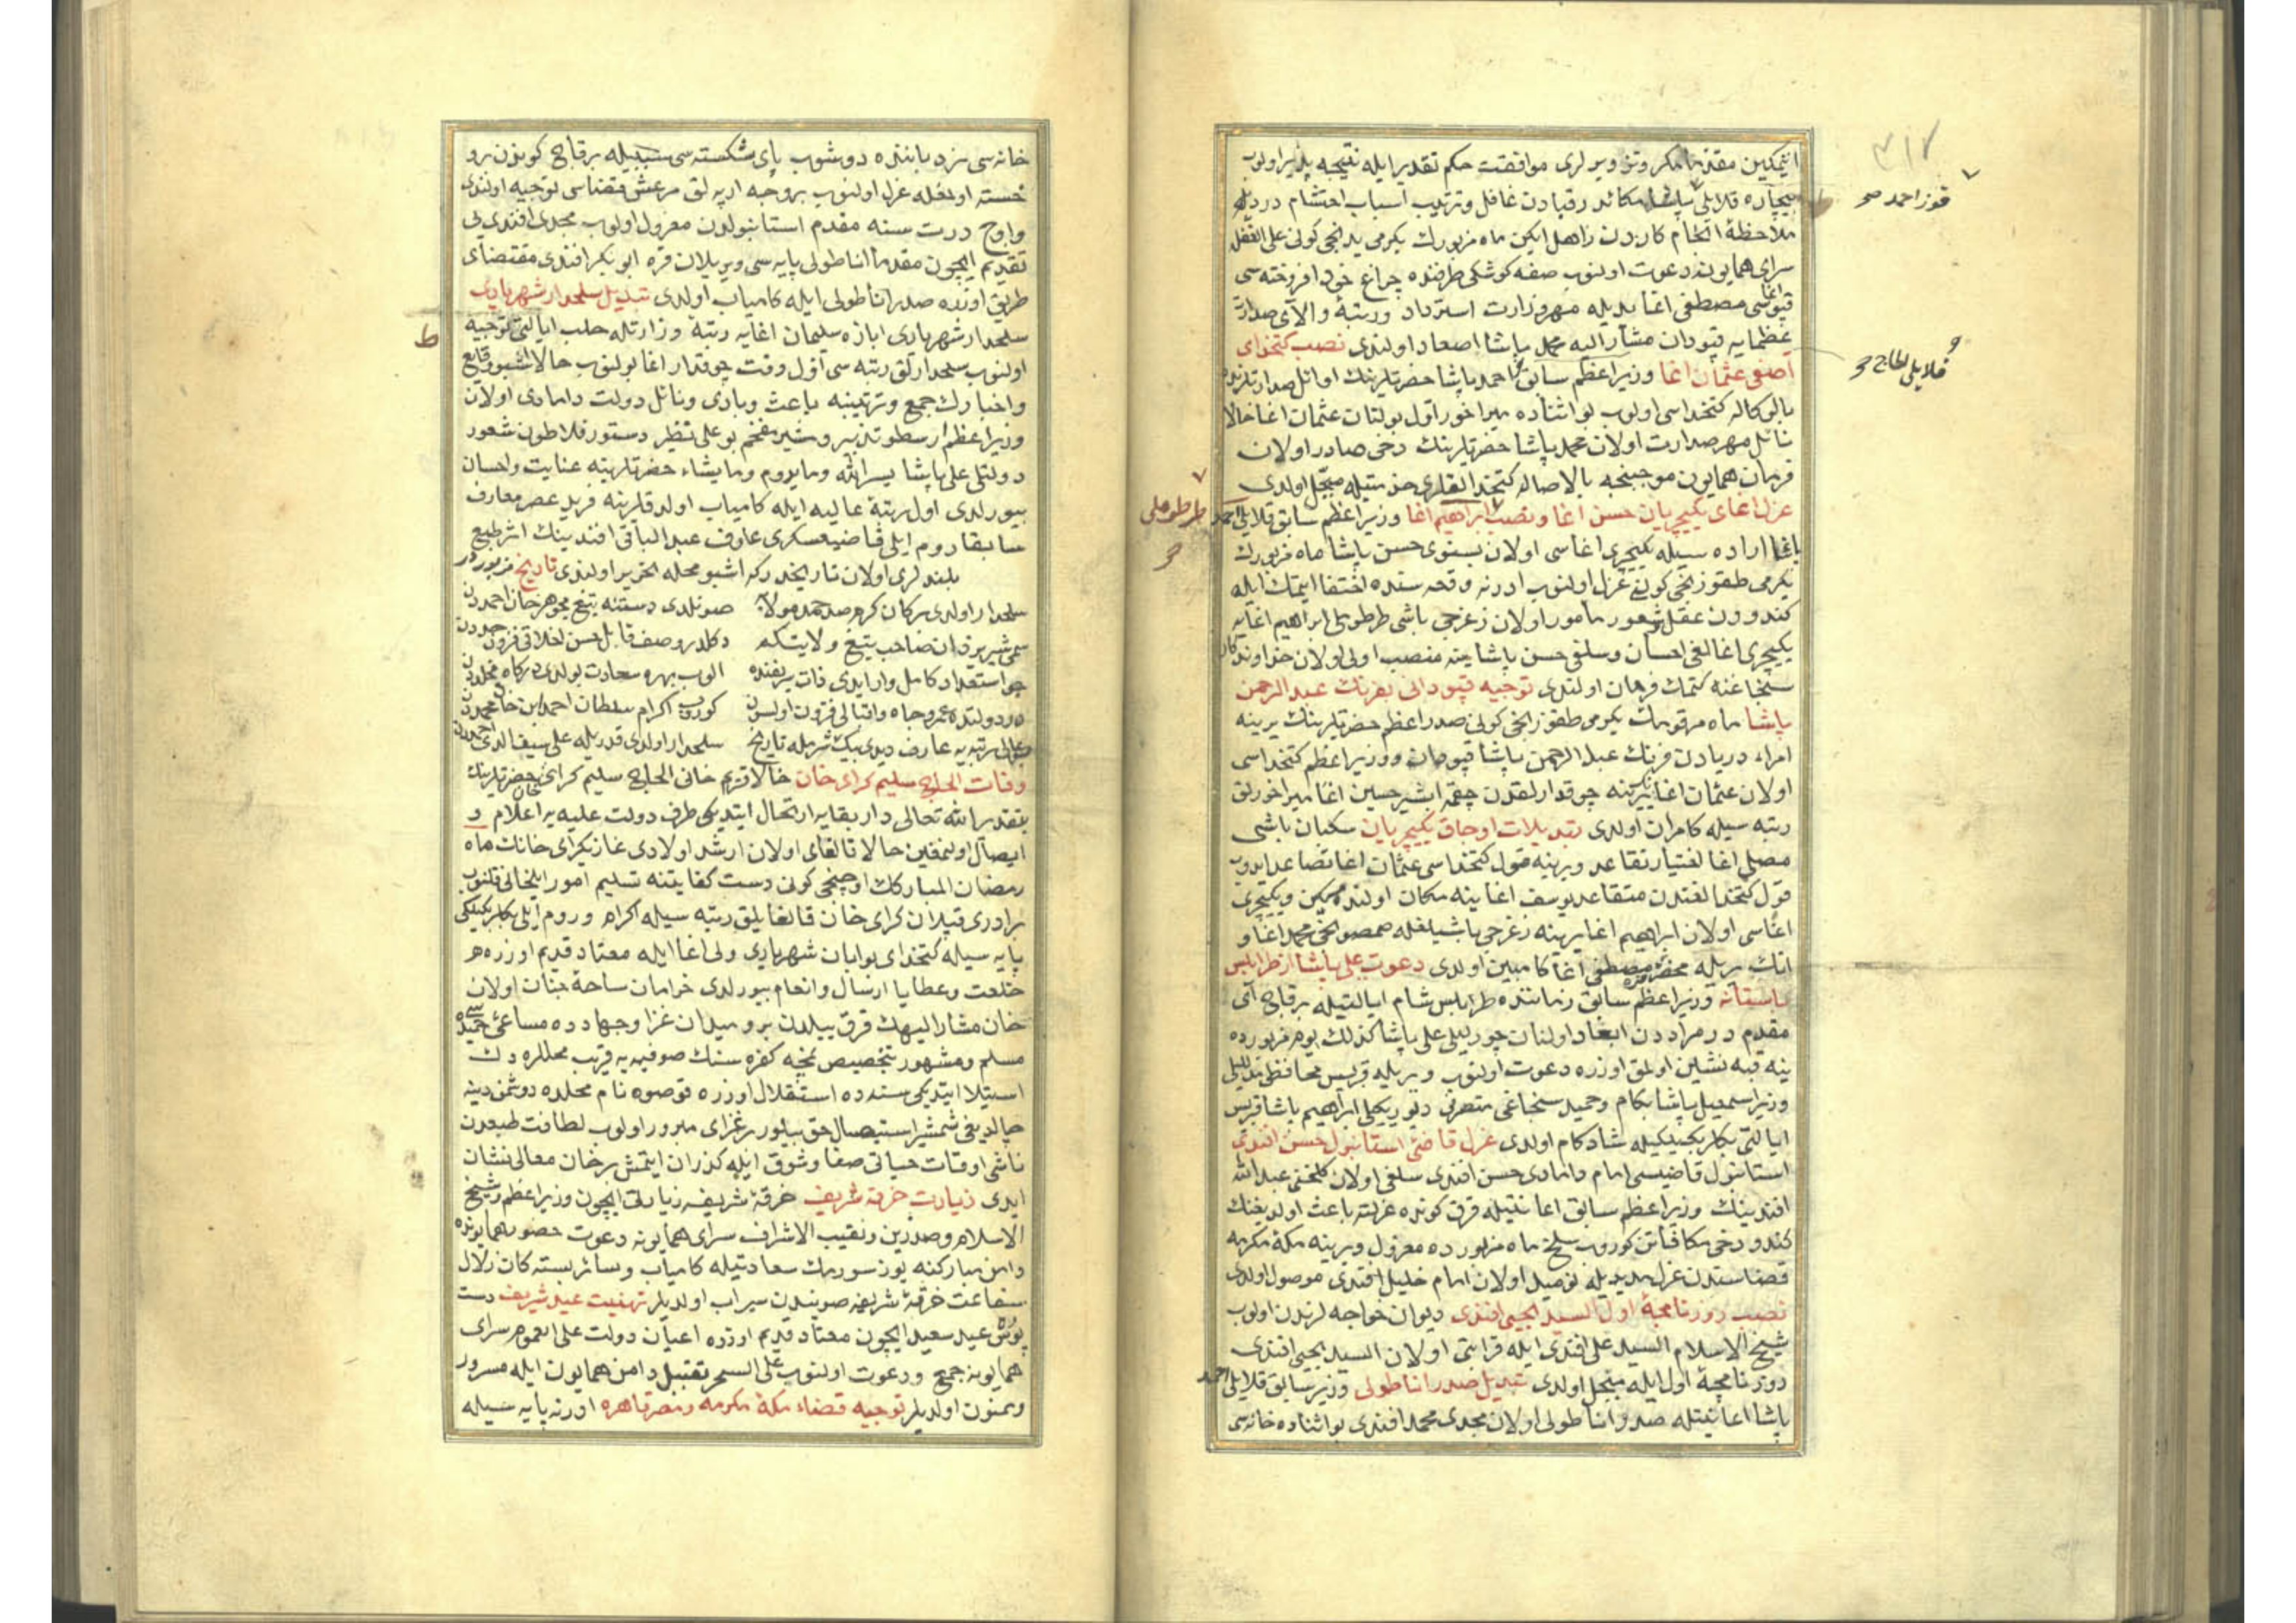 ٣١٧
ايتمكين مقدما مكر وتزويرلرى موافقت حكم تقدير ايله نتيجه پذير اولوب
بيچاره قلايلى پاشا مكائد رقبادن غافل وترتيب اسباب احتشام
ملاحظۀ انجام كاردن زاهل ايكن ماه مزبورك يكرمى يدنجى كونى على الغفله
سراى همايونه دعوت اولنوب صفه كوشكى طرفنده چراغ خود افروخته سى
قپو اغاسى مصطفى اغا يديله مهر وزارت استرداد ورتبۀ والاى صدارت
عظمايه قپودان مشار اليه محمد پاشا اصعاد اولندى نصب كتخداى
اصفى عثمان اغا وزير اعظم سابق احمد پاشا حضرتلرينك اوائل صدارتلرنده
بالوكاله كتخداسى اولوب بو اثناده ميراخور اول بولنان عثمان اغا حالا
نائل مهر صدارت اولان محمد پاشا حضرتلرينك دخى صادر اولان
فرمان همايون موجبنجه بالاصاله كتخدالقلرى خدمتيله مبجل اولدى
عزل اغاى يكيچريان حسن اغا ونصب ابراهيم اغا وزير اعظم سابق قلايلى احمد
پاشا اراده سيله يكيچرى اغاسى اولان بسنوى حسن پاشا ماه مزبورك
يكرمى طقوزنجى كونى عزل اولنوب ادرنه وقعه سنده اختفا ايتمك ايله
كندودن عقل وشعور مأمور اولان زغرجى باشى طرطوملى ابراهيم اغايه
يكيچرى اغالغى احسان وسلفى حسن پاشا ينه منصب اولى اولان خداوندكار
سنجاغنه كتمك فرمان اولندى توجيه قپودانى بفرنك عبد الرحمن
پاشا ماه مرقومك يكرمى طقوزنجى كونى صدر اعظم حضرتلرينك يرينه
امراء دريادن فرنك عبد الرحمن پاشا قپودان ووزير اعظم كتخداسى
اولان عثمان اغا يرينه چوقدارلقدن چقمه ابشير حسين اغا ميراخورلق
رتبه سيله كامران اولدى تبديلات اوجاق يكيچريان سكبان باشى
مصلى اغا اختيار تقاعد ويرينه قول كتخداسى عثمان اغا تصاعد ايدوب
قول كتخدالغندن متقاعد يوسف اغا ينه مكان اولنده مكين ويكيچرى
اغاسى اولان ابراهيم اغا يرينه زغرجى باشيلغله صمصونجى محمد اغا و
انك يريله محضر مصطفى اغا كامبين اولدى دعوت على پاشا از طرابلس
باستانه وزير اعظم سابق زماننده طرابلس شام ايالتيله برقاج آى
مقدم در مراددن ابعاد اولنان چورليلى على پاشا كذلك يوم مزبورده
ينه قبه نشين اولمق اوزره دعوت اولنوب ويريله قبريس محافظى
وزير اسمعيل پاشا بكام وحميد سنجاغى متصرفى ديوريكيلى ابراهيم پاشا قبريس
ايالتى بكلربكيلكيله شادكام اولدى عزل قاضئ استانبول حسن افندى
استانبول قاضيسى امام دامادى حسن افندى سلفى اولان كلخنى عبد الله
افندينك وزير اعظم سابق اعانتيله قرق كونده عزلته باعث اولديغنك
كندو دخى مكافاتن كوروب سلخ ماه مزبورده معزول ويرينه مكۀ مكرمه
قضاسندن عزل جديديله نوميد اولان امام خليل افندى موصول اولدى
نصب روزنامچۀ اول السيد يحيى افندى ديوان خواجه لرندن اولوب
شيخ الاسلام السيد على افندى ايله قرابتى اولان السيد يحيى افندى
روزنامچۀ اول ايله مبجل اولدى تبديل صدر اناطولى وزير سابق قلايلى احمد
پاشا اعانتيله صدر اناطولى اولان مجدى محمد افندى بو اثناده خانه سى
قوز احمد
قلايلى الحاج
طرطوملى
خانه سى نردباننده دوشوب پاى شكسته سى سببيله برقاج كوندن برو
خسته اولمغله عزل اولنوب بروجه ارپه لق مرعش قضاسى توجيه اولندى
واوج درت سنه مقدم استانبولدن معزول اولوب مجدى افندى يى
تقديم ايچون مقدما اناطولى پايه سى ويريلان قره ابو بكر افندى مقتضاى
طريق اوزره صدر اناطولى ايله كامياب اولدى تبديل سلحدار شهريارى
سلحدار شهريارى ابازه سليمان اغايه رتبۀ وزارتله حلب ايالتى توجيه
اولنوب سلحدارلق رتبه سى اول وقت چوقدار اغا بولنوب حالا اشبو وقايع
واخبارك جمع وترتيبنه باعث وبادى ونائل دولت دامادى اولان
وزير اعظم ارسطو تدبير ومشير مفخم بو على نظير دستور فلاطون شعور
دولتلى على پاشا يسر الله ما يروم وما يشاء حضرتلرينه عنايت واحسان
بيورلدى اول رتبۀ عاليه ايله كامياب اولدقلرينه فريد عصر معارف
سابقا روم ايلى قاضيعسكرى عارف عبد الباقى افندينك اثر طبع
بلندلرى اولان تاريخدر كه اشبو محله تحرير اولندى تاريخ مزبور در
سلحدار اولدى بركان كرم صد حمد مولايه صونلدى دستنه تيغ مجوهر خان احمددن
سمى شير يزدان صاحب تيغ ولايتكم دكلدر وصفه قابل حسن اخلاقى فزون حددن
چو استعداد كامل وار ايدى ذات شريفنده الوب بهره سعادت بولدى دركاه مخلددن
در دولتده عمر وجاه واقبالى فزون اولسون كوروب اكرام سلطان احمد ابن خان محمددن
بو عالى رتبه يه عارف ديدى بيك شوقله تاريخ سلحدار اولدى قدريله على سيف الدى احمددن
وفات الحاج سليم كراى خان حالا قريم خانى الحاج سليم كراى خان حضرتلرينك
بتقدير الله تعالى دار بقايه ارتحال ايتديكى طرف دولت عليه يه اعلام و
ايصال اولنمغين حالا قالغاى اولان ارشد اولادى غازيكراى خانك ماه
رمضان المباركك اوچنجى كونى دست كفايتنه تسليم امور ايلخانى قلنوب
برادرى قپلان كراى خان قالغايلق رتبه سيله اكرام وروم ايلى بكلربكيلكى
پايه سيله كتخداى بوابان شهريارى ولى اغا ايله معتاد قديم اوزره
خلعت وعطايا ارسال وانعام بيورلدى خرامان ساحۀ جنان اولان
خان مشار اليهك قرق ييلدن برو ميدان غزا وجهادده مساعئ جميله سى
مسلم ومشهور بتخصيص نمچه كفره سنك صوفيه يه قريب محللره دك
استيلا ايتديكى سنه ده استقلال اوزره قوصوه نام محلده دوشمن دينه
چالديغى شمشير استيصال حق بيلور بر غزاى مبرور اولوب لطافت طبعندن
ناشى اوقات حياتى صفا وشوق ايله كذران ايتمش بر خان معالى نشان
ايدى زيارت خرقۀ شريف خرقۀ شريفه زيارتى ايچون وزير اعظم وشيخ
الاسلام وصدرين ونقيب الاشراف سراى همايونه دعوت حضور همايونده
دامن مباركنه يوز سورمك سعادتيله كامياب وسائر بستكان زلال
شفاعت خرقۀ شريفه صويندن سيراب اولديلر تهنيت عيد شريف دست
بوس عيد سعيد ايچون معتاد قديم اوزره اعيان دولت على العموم سراى
همايونه جمع ودعوت اولنوب على السحر تقبيل دامن همايون ايله مسرور
وممنون اولديلر توجيه قضاء مكۀ مكرمه ومصر قاهره ادرنه پايه سيله
ط